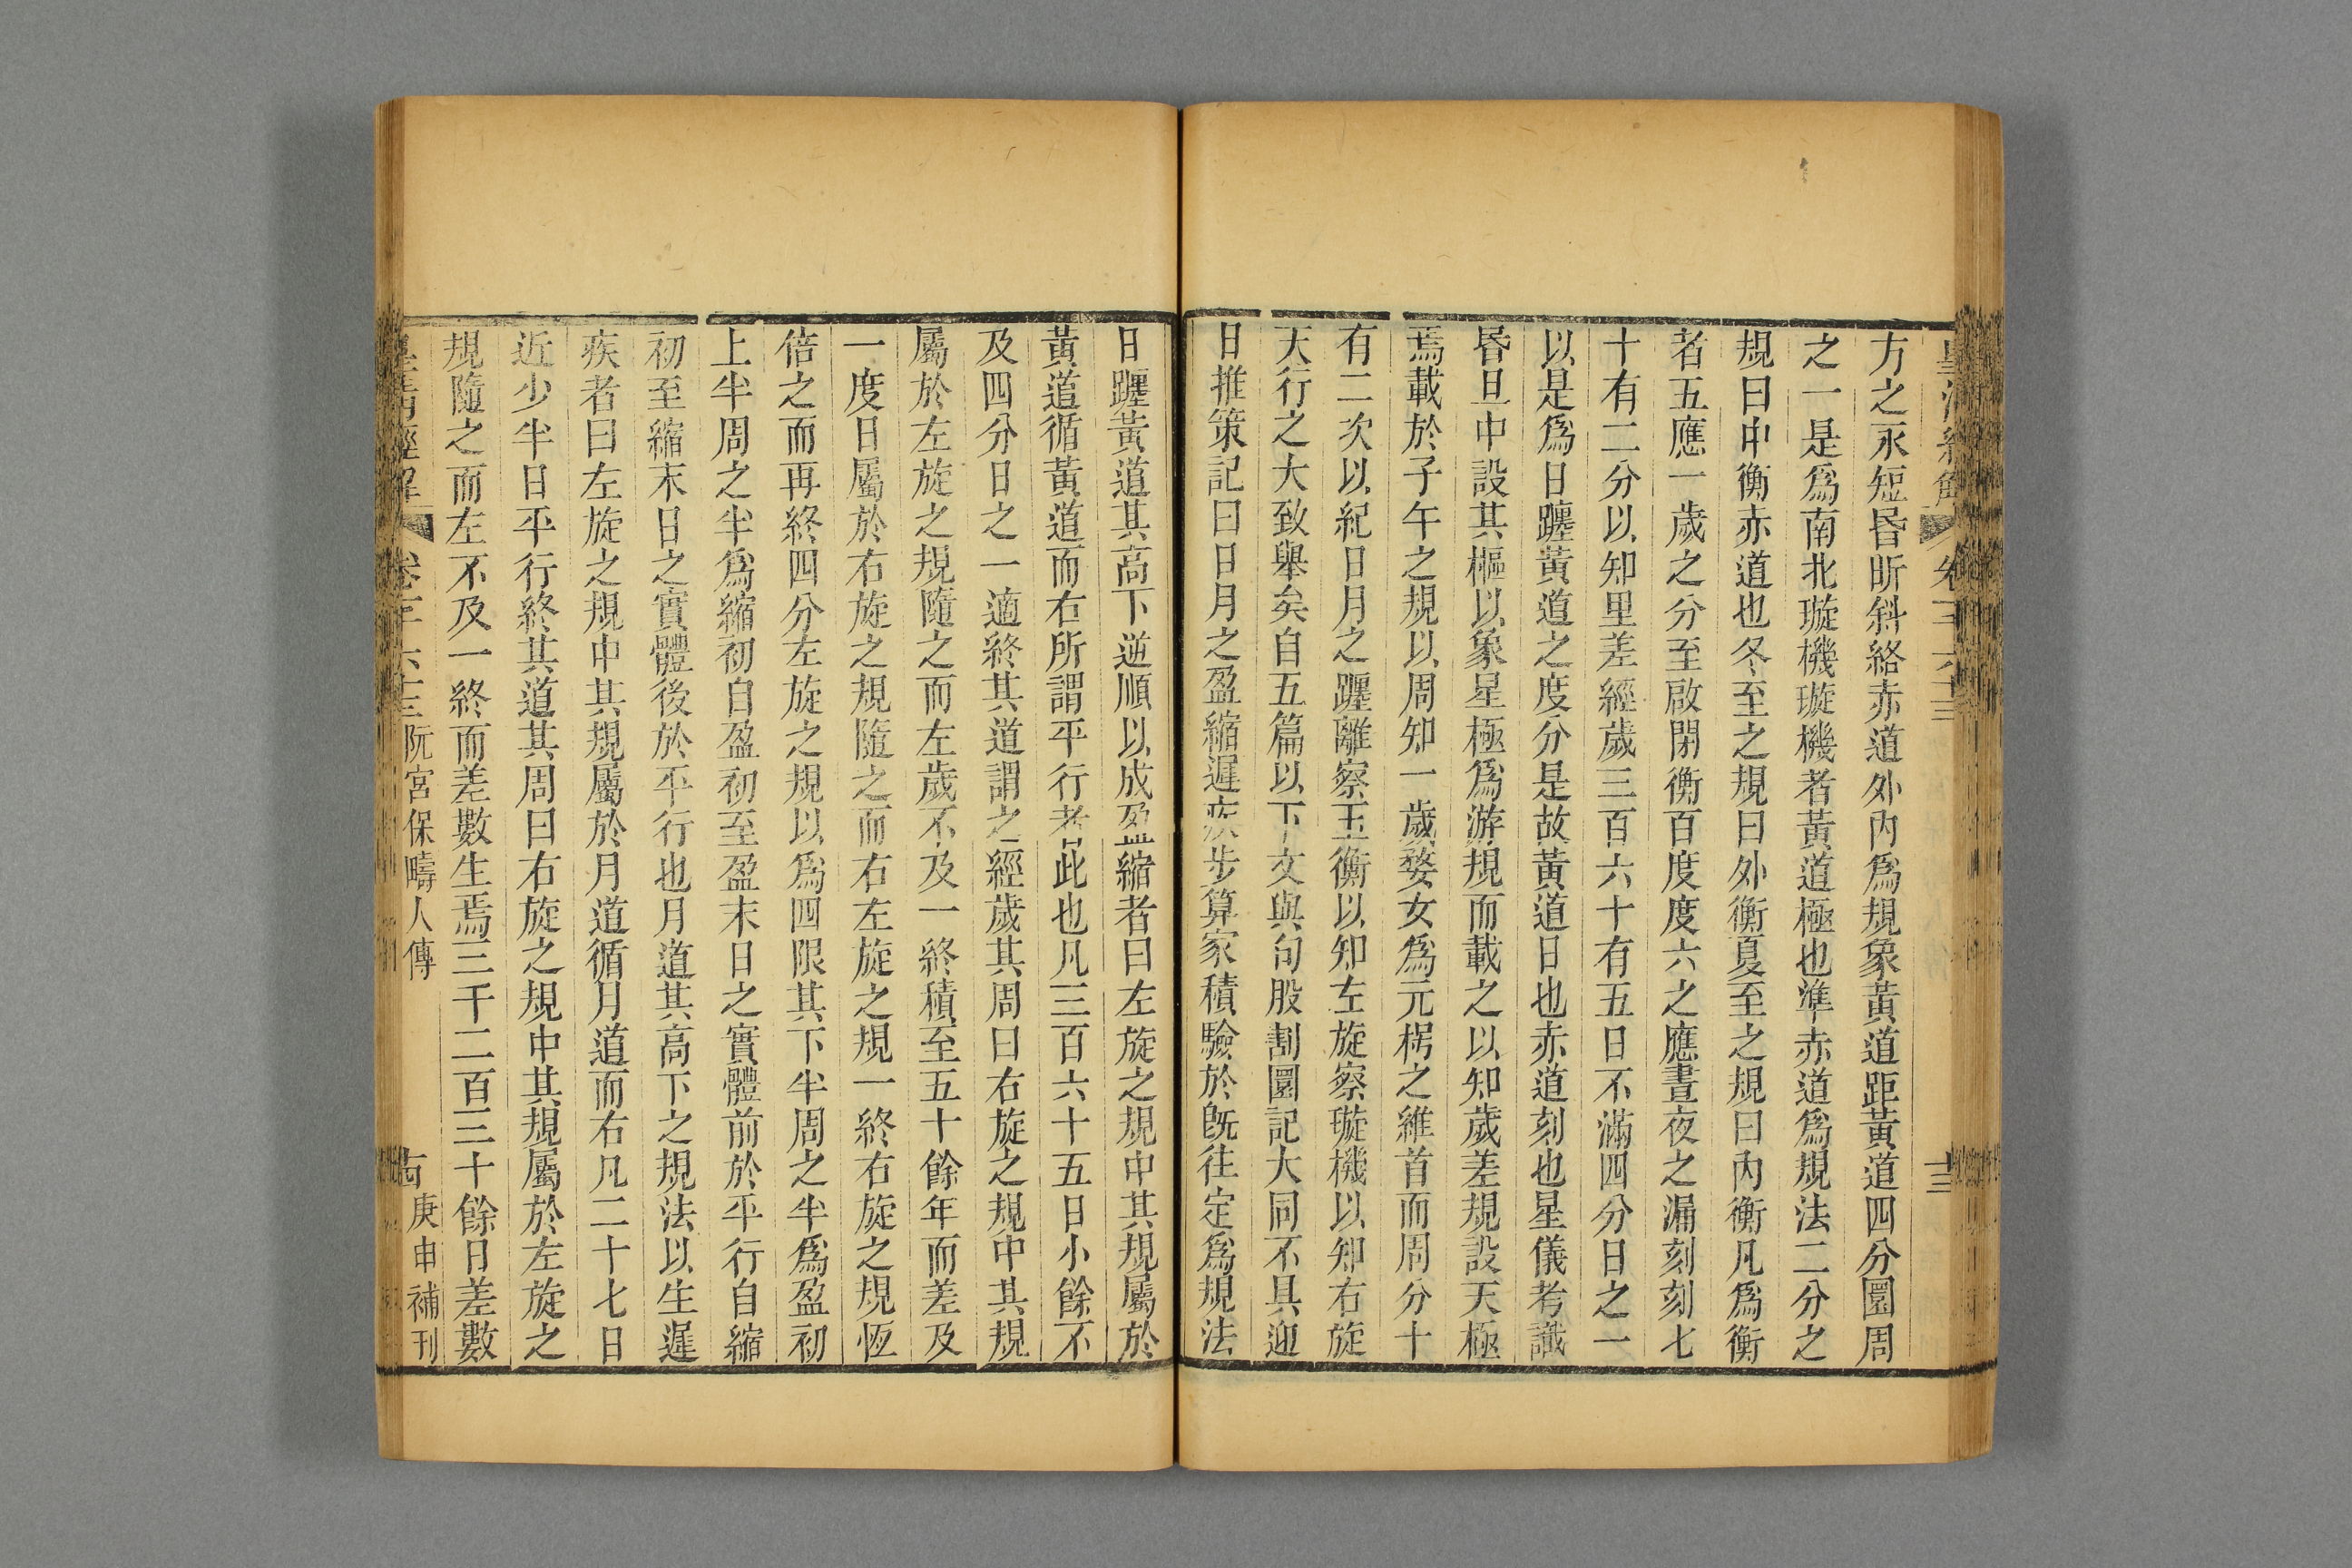 方之永短昏昕斜絡赤道外內爲規象黃道距黃道四分圜周
之一是爲南北璇機璇機者黃道極也準赤道爲規法二分之
規曰中衡赤道也冬至之規曰外衡夏至之規曰內衡凡爲衡
者五應一歲之分至啟閉衡百度度六之應晝夜之漏刻刻七
十有二分以知里差經歲三百六十有五日不滿四分日之一
以是爲日躔黃道之度分是故黃道日也赤道刻也星儀考識
昏旦中設其樞以象星極爲游規而載之以知歲差規設天極
焉載於子午之規以周知一歲婺女爲元枵之維首而周分十
有二次以紀日月之躔離察玉衡以知左旋察璇機以知右旋
天行之大致舉矣自五篇以下文與句股割圜記大同不具迎
日推策記曰日月之盈縮遲疾步算家積驗於旣往定爲規法
日躔黃道其高下逆順以成盈縮者曰左旋之規中其規屬於
黃道循黃道而右所謂平行者此也凡三百六十五日小餘不
及四分日之一適終其道謂之經歲其周曰右旋之規中其規
屬於左旋之規隨之而左歲不及一終積至五十餘年而差及
一度日屬於右旋之規隨之而右左旋之規一終右旋之規恆
倍之而再終四分左旋之規以爲四限其下半周之半爲盈初
上半周之半爲縮初自盈初至盈末日之實體前於平行自縮
初至縮末日之實體後於平行也月道其高下之規法以生遲
疾者曰左旋之規中其規屬於月道循月道而右凡二十七日
近少半日平行終其道其周曰右旋之規中其規屬於左旋之
規隨之而左不及一終而差數生焉三千二百三十餘日差數
阮宮保疇人傳
庚申補刊